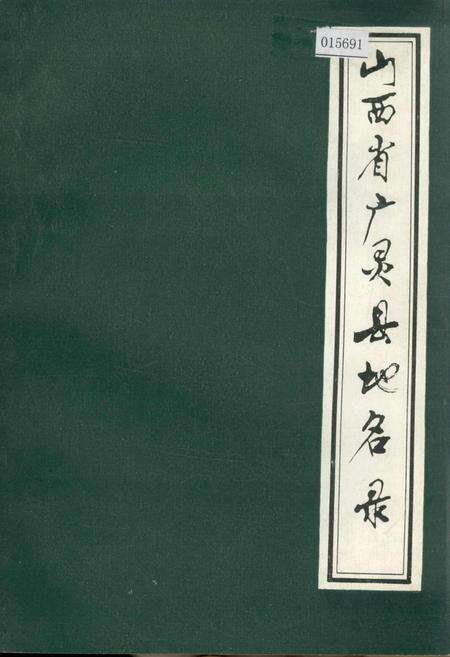 015691
山西省广灵县地名录